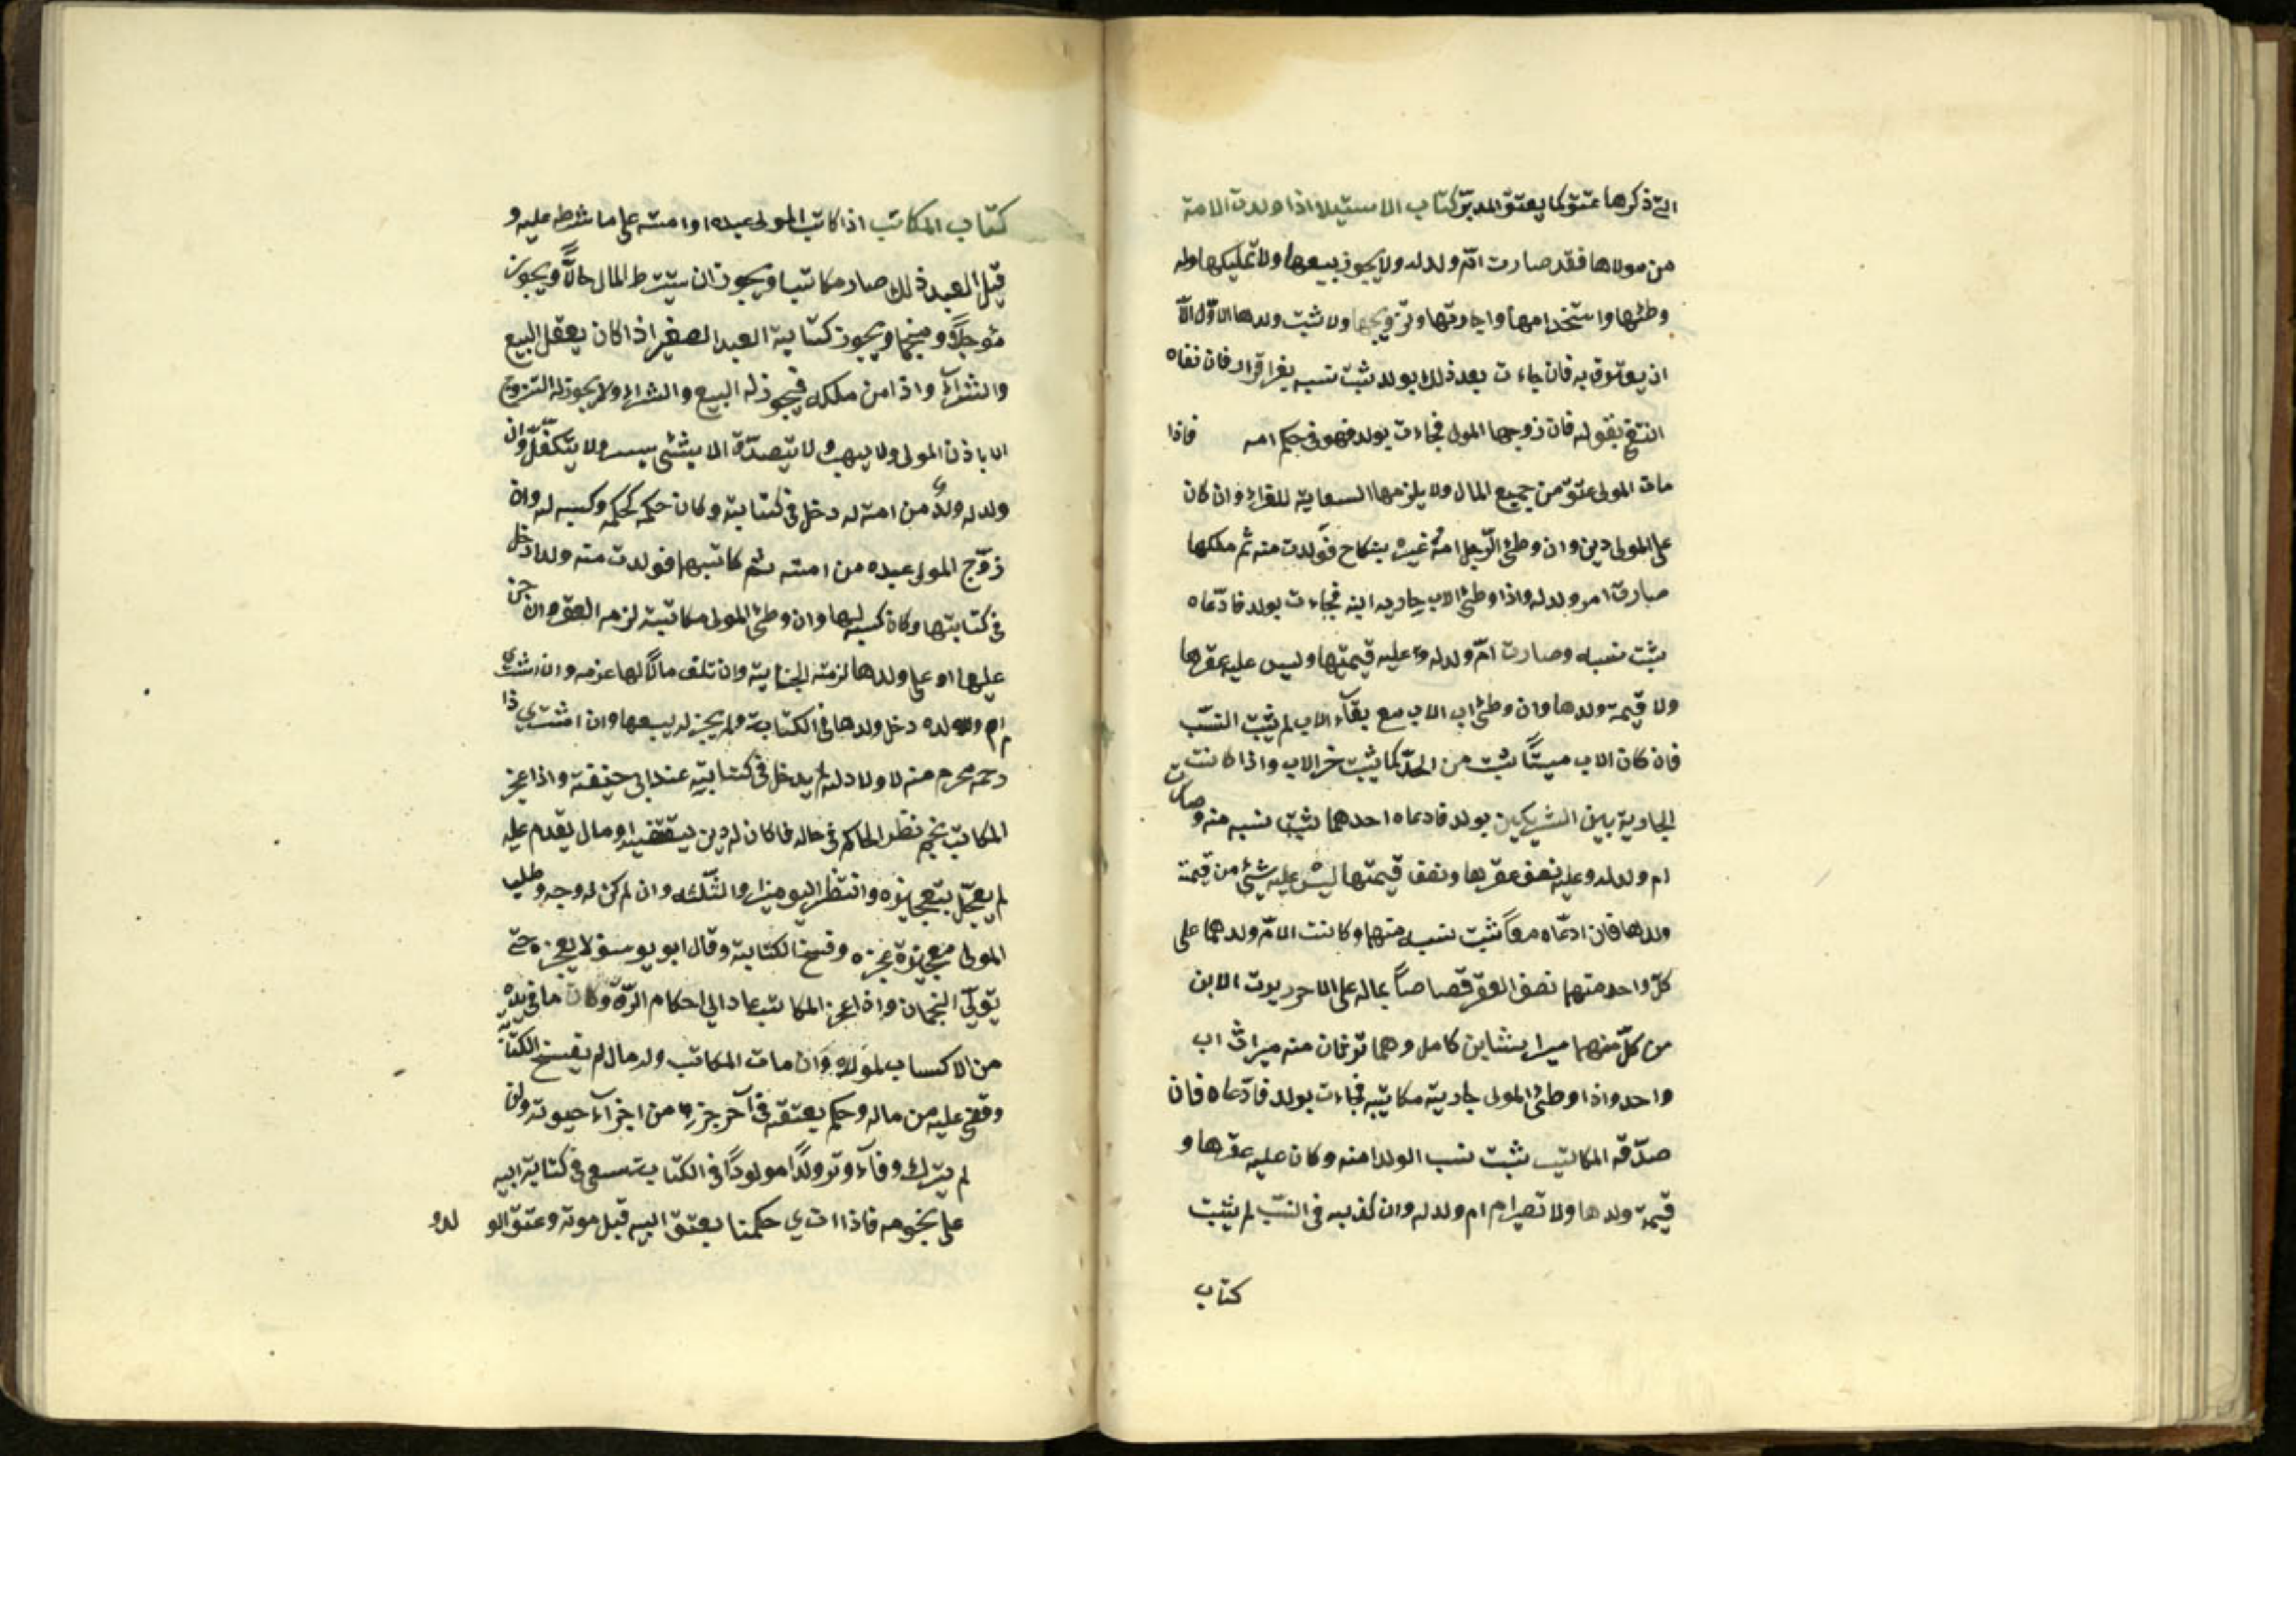 التي ذكرها عتق كما يعتق المدبر كتاب الاستيلاد اذا ولدت الامة
من مولاها فقد صارت ام ولد له ولا يجوز بيعها ولا تمليكها وله
وطئها واستخدامها واجارتها وتزويجها ولا ثبت ولدها الاول الا
ان يعترف به فان جاءت بعد ذلك بولد ثبت نسبه بغير اقرار فان نفاه
انتفى بقوله فان زوجها المولى فجاءت بولد فهو في حكم امه فاذا
مات المولى عتق من جميع المال ولا يلزمها السعاية للغراء وان كان
على المولى دين وان وطئ الرجل امة غيره بنكاح فولدت منه ثم ملكها
صارت ام ولد له واذا وطئ الاب جارية ابنه فجاءت بولد فادعاه
يثبت نسبه وصارت ام ولد له وعليه قيمتها وليس عليه عقرها
ولا قيمة ولدها وان وطئ اب الاب مع بقاء الاب لم يثبت النسب
فان كان الاب ميتا يثبت من الجد كما يثبت من الاب واذا كانت
الجارية بين الشريكين بولد فادعاه احدهما يثبت نسبه منه وصارت
ام ولد له وعليه نصف عقرها ونصف قيمتها ليس عليه شيئ من قيمة
ولدها فان ادعاه معا ثبت نسبه منهما وكانت الام ولدهما على
كل واحد منهما نصف العقر قصاصا بماله على الاخر ويرث الابن
من كل منهما ميراث ابن كامل وهما ترثان منه ميراث اب
واحد واذا وطئ المولى جارية مكاتبه فجاءت بولد فادعاه فان
صدقه المكاتب يثبت نسب الولد منه وكان عليه عقرها و
قيمة ولدها ولا تصير ام ولد له وان كذبه في النسب لم يثبت
كتاب
كتاب المكاتب اذا كاتب المولى عبده او امته على ما شرطه عليه و
قبل العبد ذلك صار مكاتبا ويجوز ان يشترط المال حالا ويجوز
مؤجلا ومنجما ويجوز كتابة العبد الصغير اذا كان يعقل البيع
والشراء واذا من ملكه فيجوز له البيع والشراء ولا يجوز له التزوج
الا باذن المولى ولا يهب ولا يتصدق الا بشئ يسير ولا يتكفل وان
ولد له ولد من امة له دخل في كتابته وكان حكمه كحكمه وكسبه له وان
زوج المولى عبده من امته ثم كاتبهما فولدت منه ولدا دخل
في كتابتها وكان كسبه لها وان وطئ المولى مكاتبته لزمه العقر وان جنى
عليها او على ولدها لزمته الجناية وان تلف مالا لها غرمه وان اشترى
ام ولده دخل ولدها في الكتابة ولم يجز له بيعها وان اشترى ذا
رحم محرم منه لا ولاد له لم يدخل في كتابته عند ابي حنيفة واذا عجز
المكاتب نجم نظر الحاكم في حاله فاكان له دين يقتضيه او مال يقدم عليه
لم يعجل بتعجيزه وانتظر اليومين او الثلثه وان لم يكن له وجه وطلب
المولى تعجيزه عجزه وفسخ الكتابة وقال ابو يوسف لا يعجزه حتى
يتولى النجمان واذا عجز المكاتب عاد الى احكام الرق وكان ما في يده
من الاكساب لمولاه وان مات المكاتب وله مال لم يفسخ الكتابة
وقضى عليه من ماله وحكم بعتقه في آخر جزء من اجزاء حيوته وان
لم يترك وفاء وترك ولدا مولودا في الكتابة سعى في كتابة ابيه
على نجومه فاذا ادى حكمنا بعتق ابيه قبل موته وعتق الو
لدو